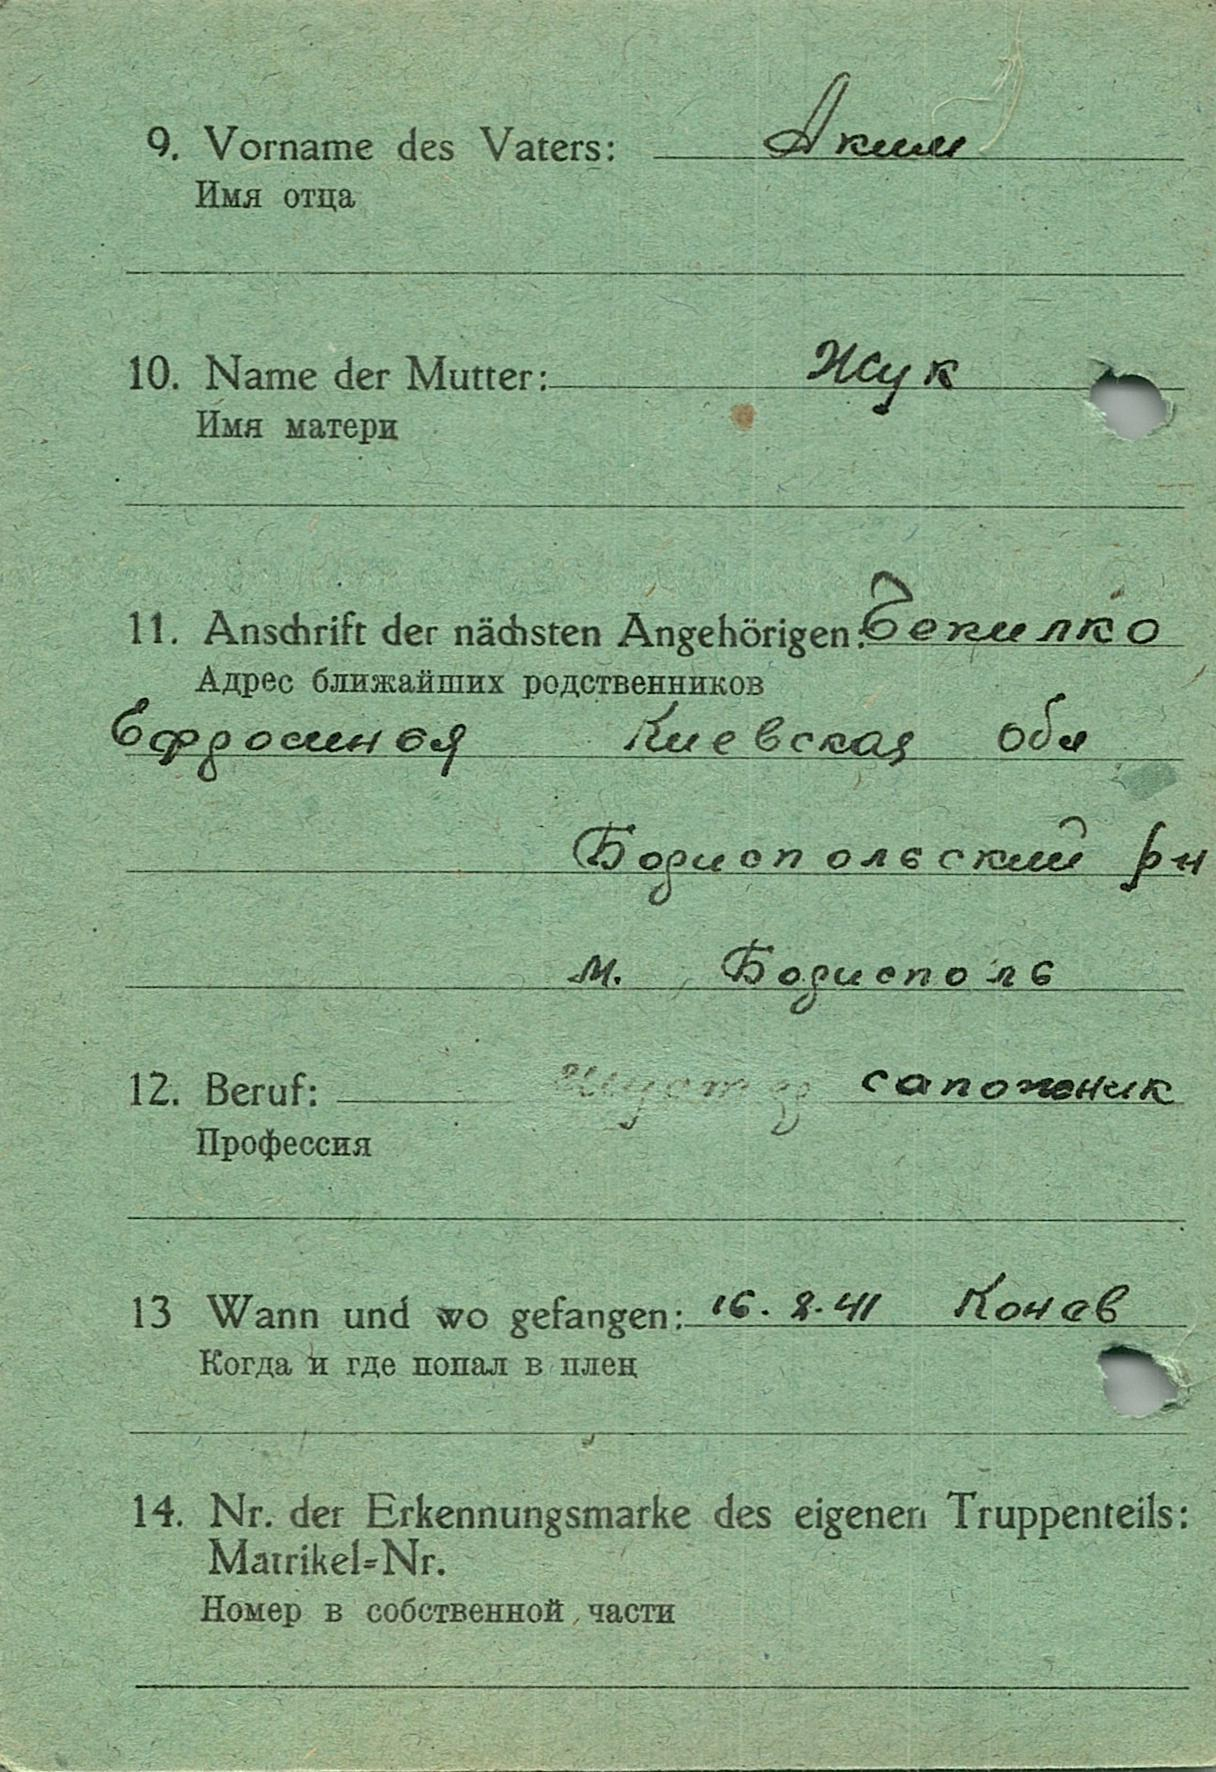 9. Vorname des Vaters: Аким
Имя отца
10. Name der Mutter: Жук
Имя матери
11. Anschrift der nächsten Angehörigen: Бекилко
Адрес ближайших родственников
Ефросинья Киевская обл
Бориспольский рн
м. Борисполь
12. Beruf: сапожник
Профессия
13 Wann und wo gefangen: 16. 8. 41 Конев
Когда и где попал в плен
14. Nr. der Erkennungsmarke des eigenen Truppenteils:
Matrikel=Nr.
Номер в собственной части